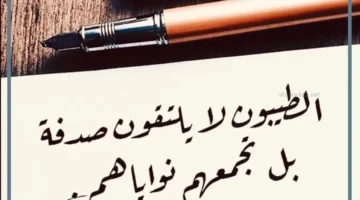 الطيبون لا يلتقون صدفة
بل تجمعهم نواياهم.